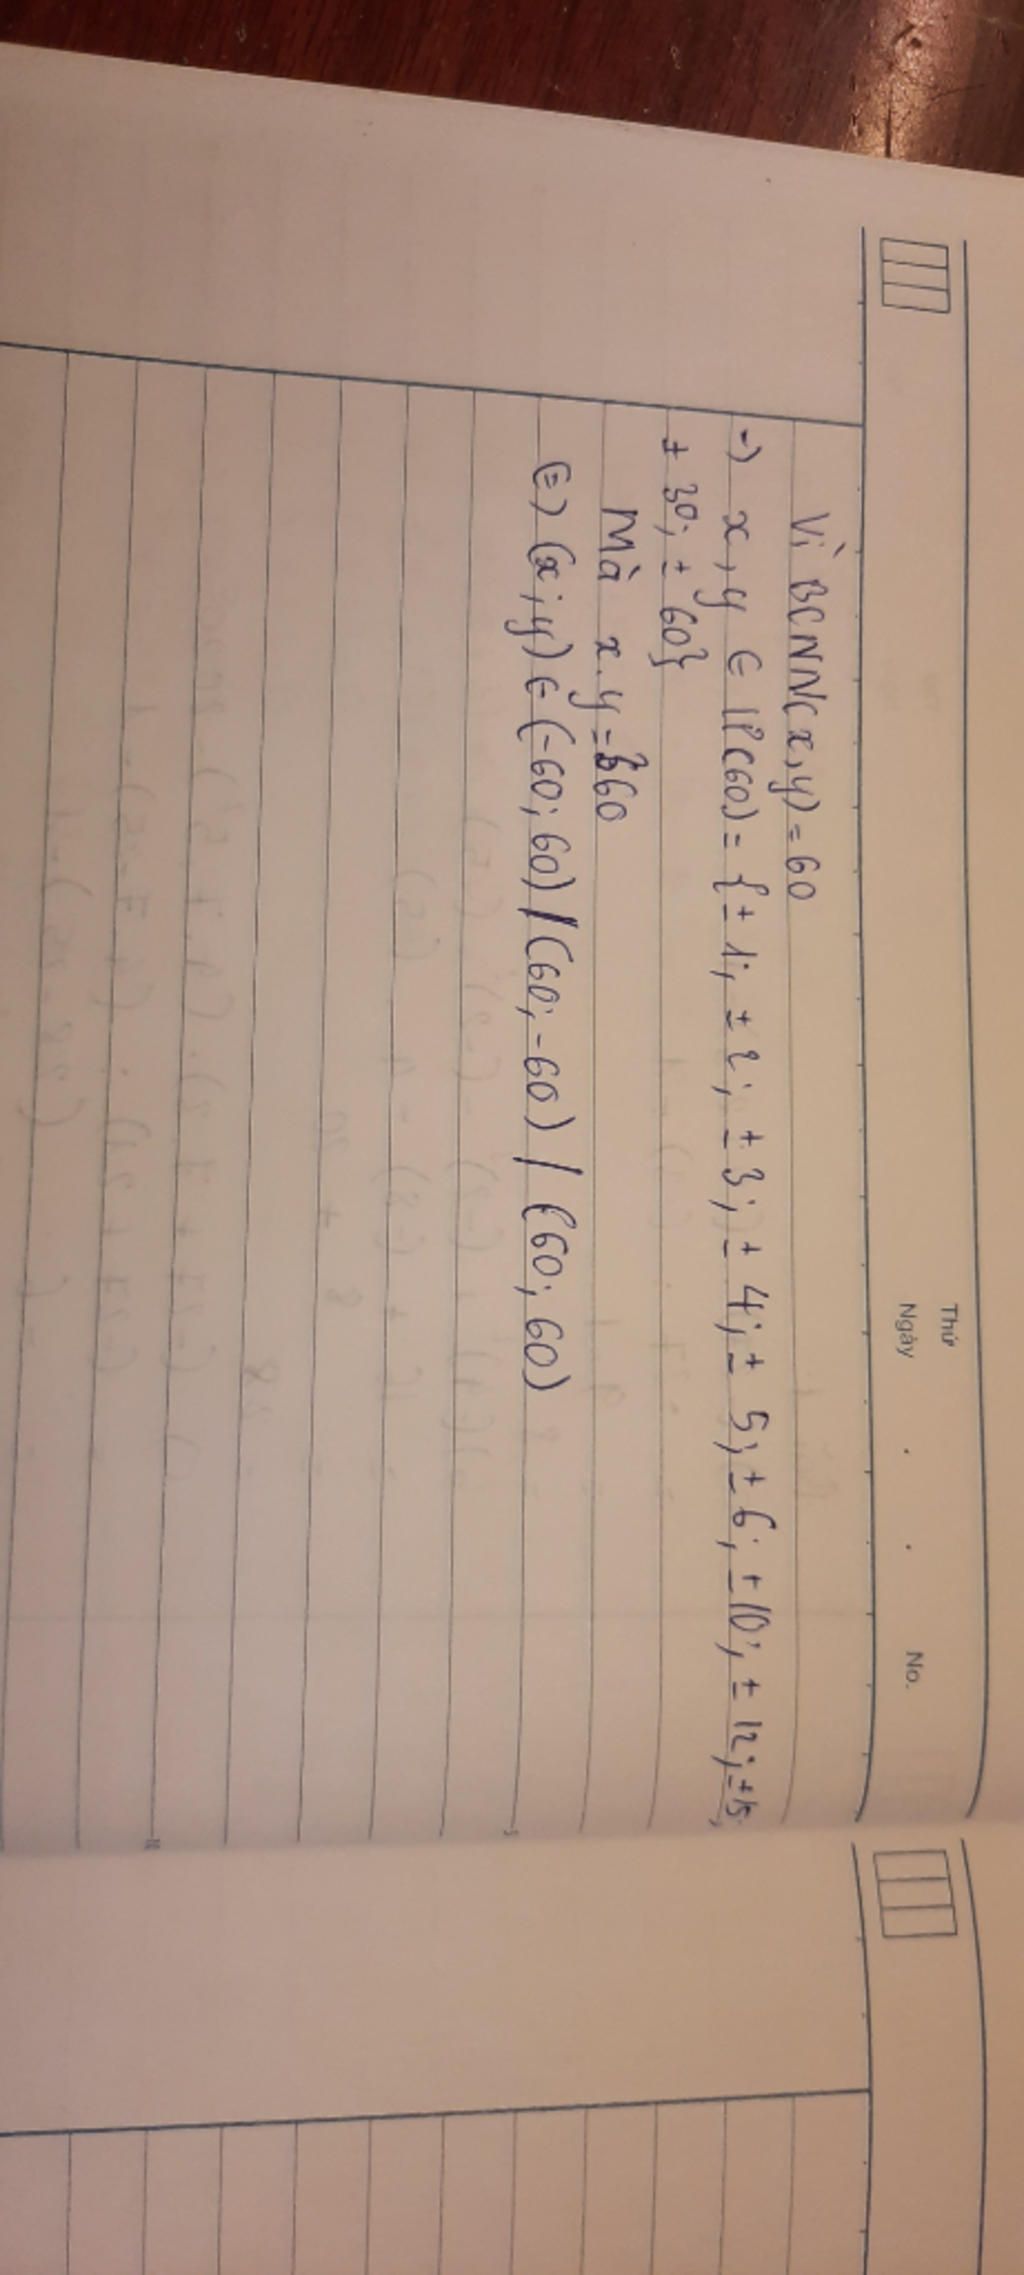 Thứ
Ngày . . No.
Vì BCNN(x,y) = 60
-) x, y ∈ Ư(60) = {± 1; ± 2; ± 3; ± 4; ± 5; ± 6; ± 10; ± 12; ± 15;
± 30; ± 60}
Mà x.y = 360
(=) (x; y) ∈ (-60; 60) / (60; -60) / (60; 60)
5
10